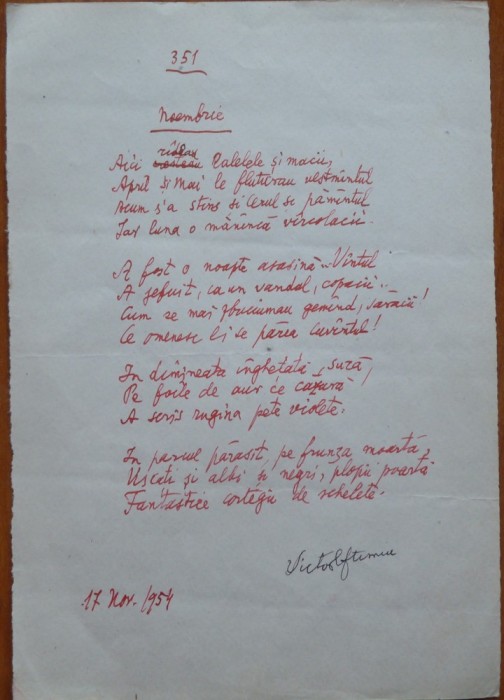 351
Noembrie
Aici rîdeau Lalelele și macii,
April și Mai le fluturau vestmîntul
Acum s'a stins și Cerul și pămîntul
Iar luna o mănîncă vîrcolacii.
A fost o noapte asasină... Vîntul
A jefuit, ca un vandal, copacii...
Cum se mai zbuciumau gemînd, săracii!
Ce omenesc li se părea cuvîntul!
In dimineața înghețată, sură,
Pe foile de aur ce căzură
A scris rugina pete violete.
In parcul părăsit, pe frunza moartă
Uscați și albi și negri, plopii poartă
Fantastice cortegii de schelete.
Victor Eftimiu
17 Nov. 1954